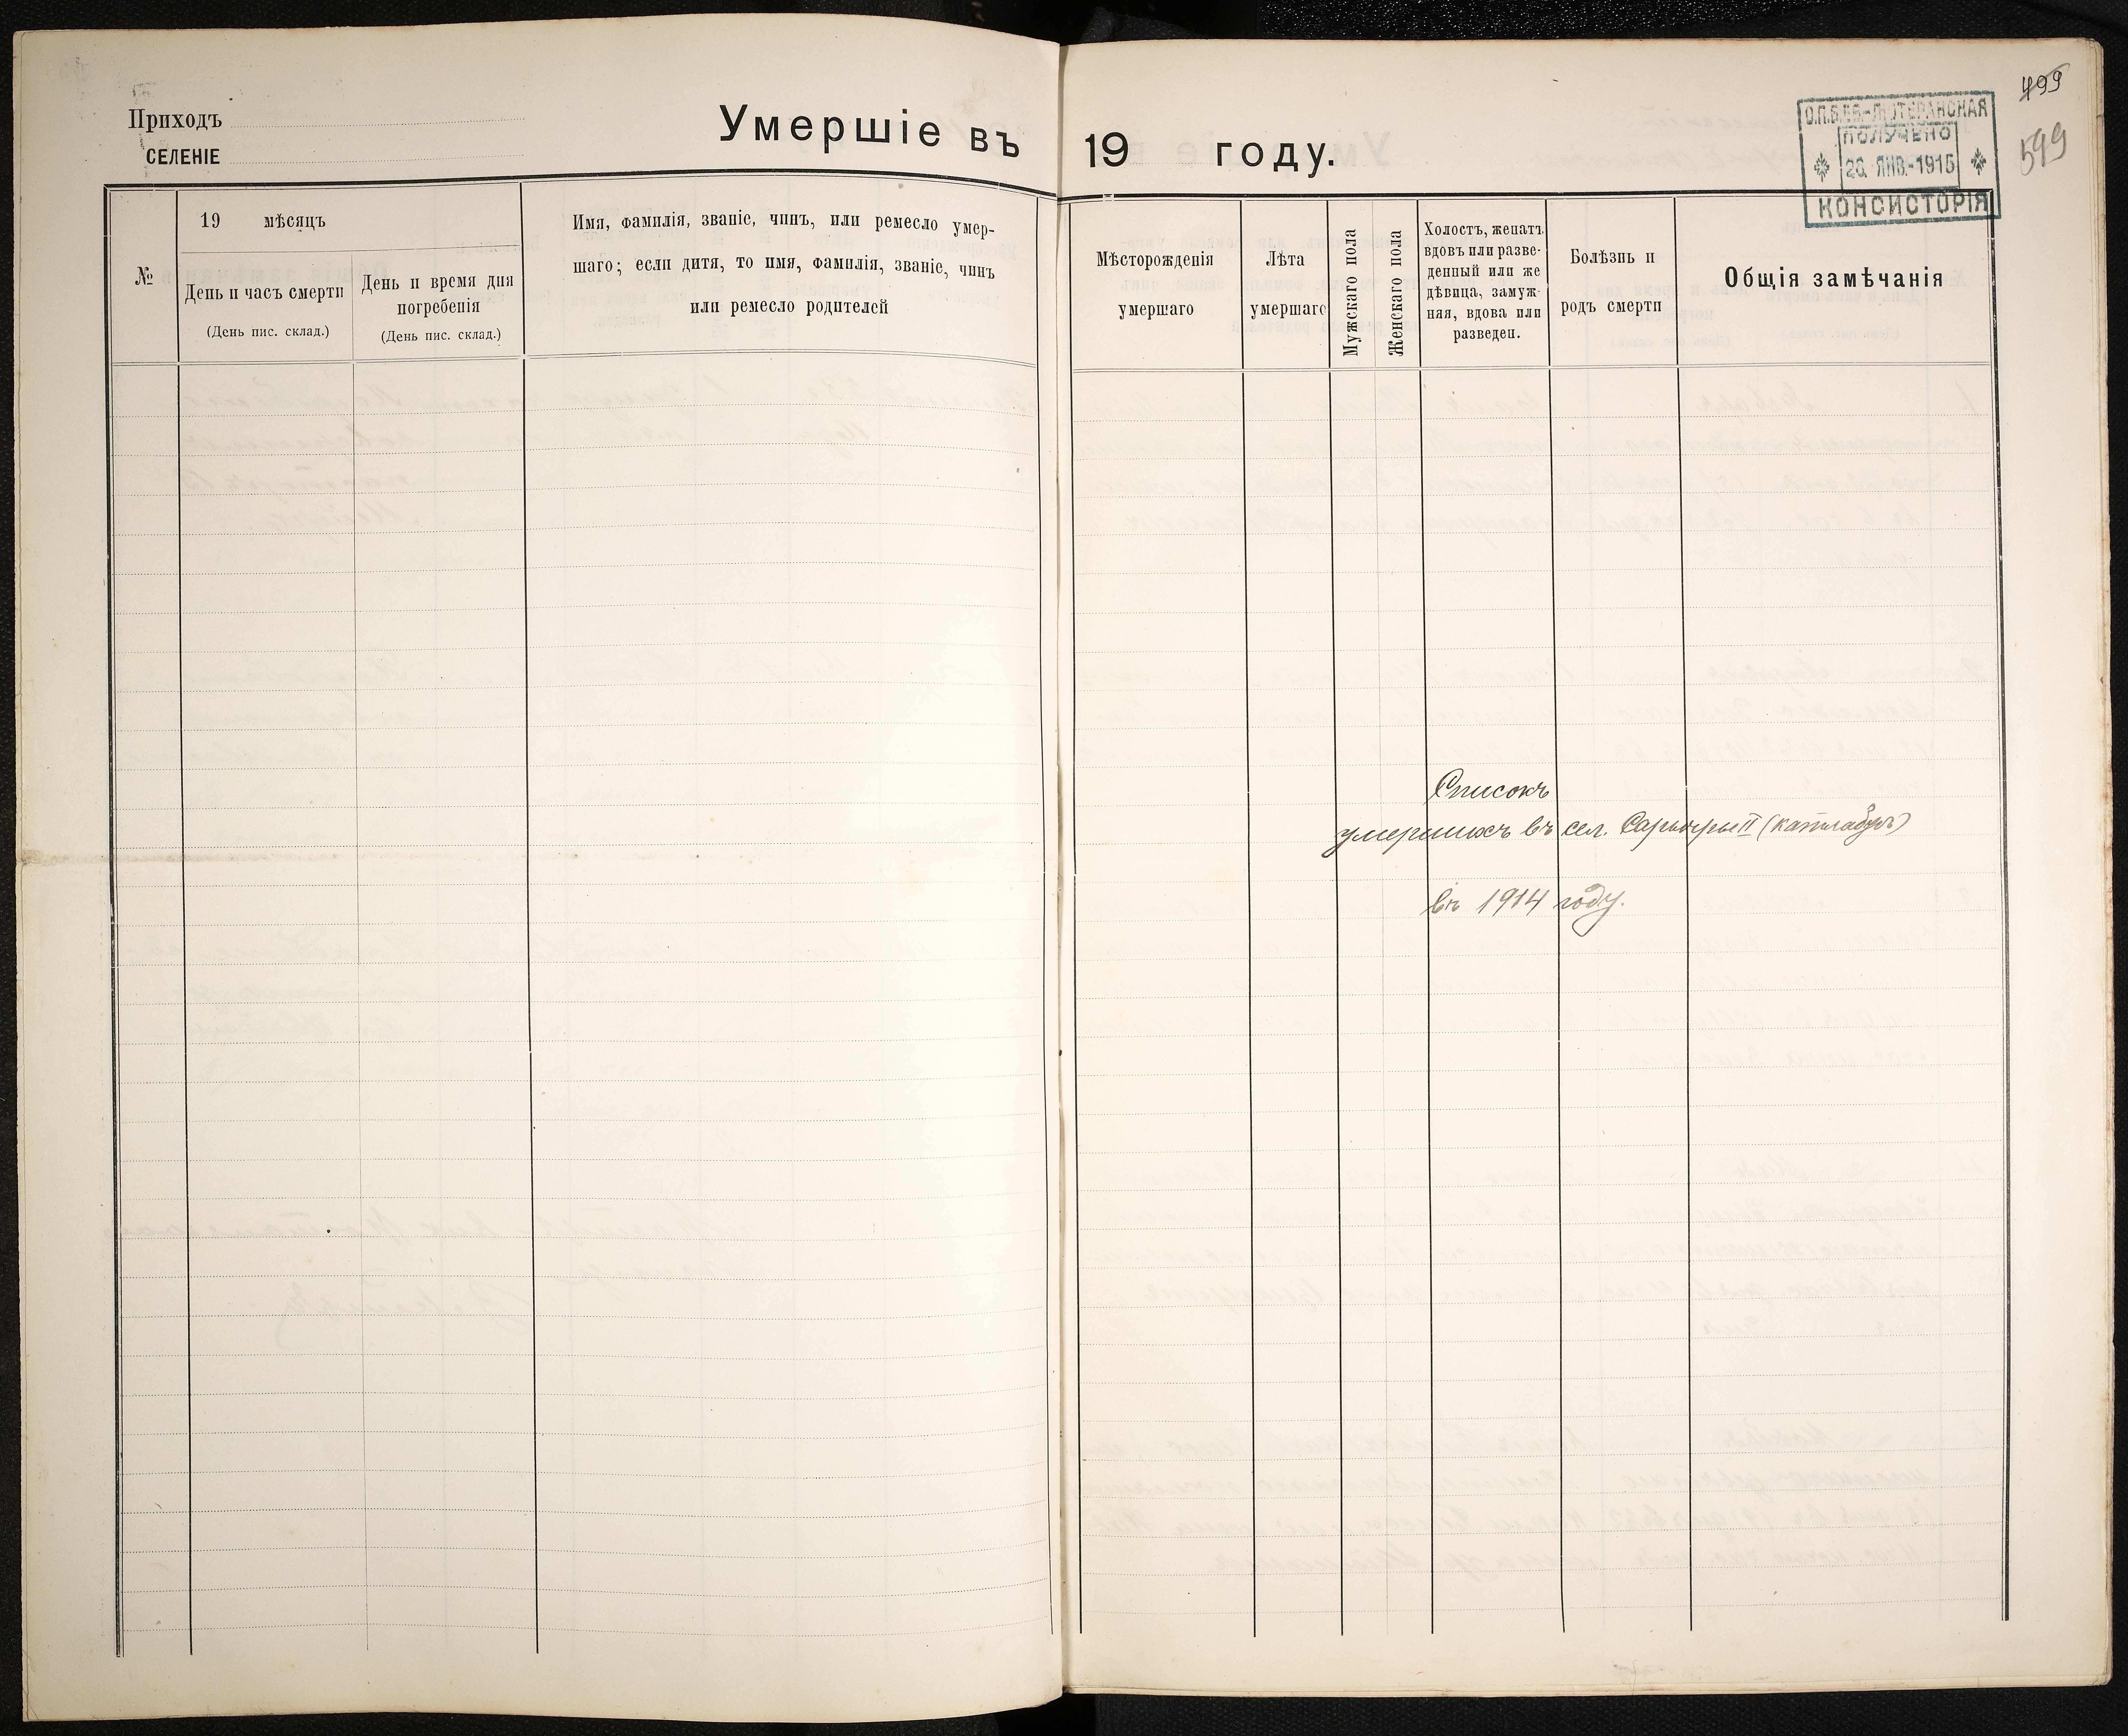 Приходъ
СЕЛЕНІЕ
Умершіе въ 19 году.
499
599
О.П.Б. ЕВ.-ЛЮТЕРАНСКАЯ
ПОЛУЧЕНО
26 ЯНВ.-1915
КОНСИСТОРІЯ
№
19 мѣсяцъ
День и часъ смерти
(День пис. склад.)
День и время дня
погребенія
(День пис. склад.)
Имя, фамилія, званіе, чинъ, или ремесло умер-
шаго; если дитя, то имя, фамилія, званіе, чинъ
или ремесло родителей
Мѣсторожденія
умершаго
Лѣта
умершаго
Мужскаго пола
Женскаго пола
Холостъ, женатъ
вдовъ или разве-
денный или же
дѣвица, замуж-
няя, вдова или
разведен.
Болѣзнь и
родъ смерти
Общія замѣчанія
Списокъ
умершихъ въ сел. II (Катлабугъ)
въ 1914 году.